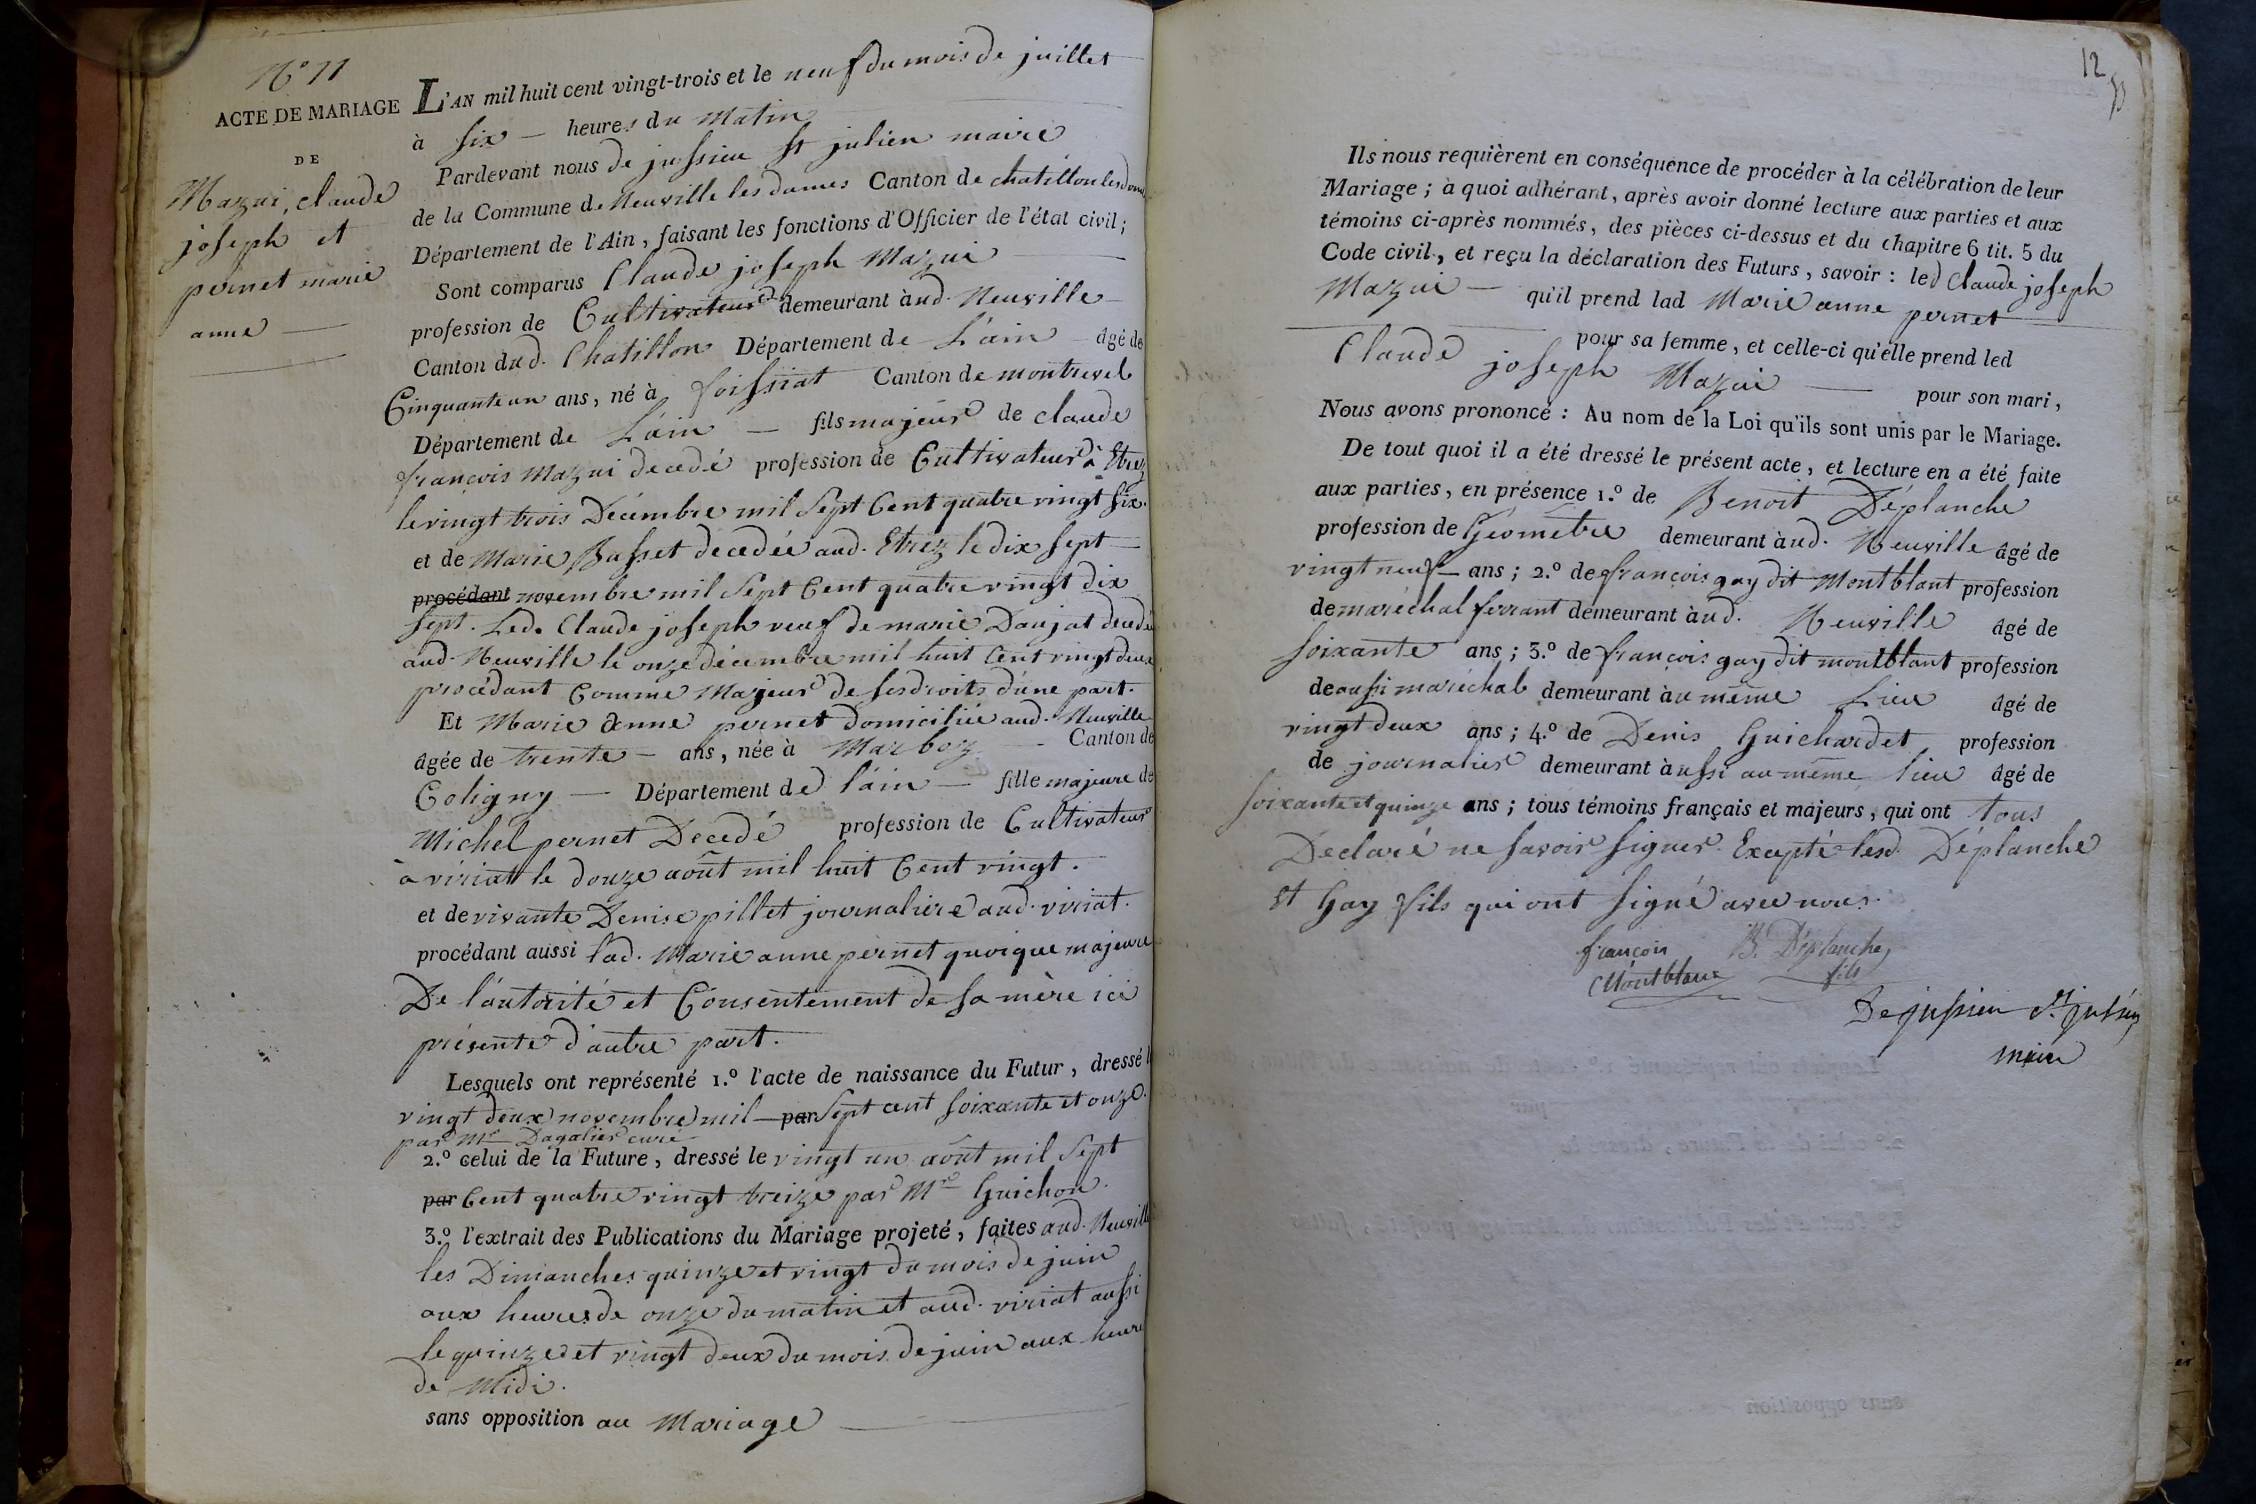 N° 11
ACTE DE MARIAGE
DE
Mazui, claude
joseph et
pernet marie
anne
L'AN mil huit cent vingt-trois et le neuf du mois de juillet
à six heures du matin
Pardevant nous de jussieu st julien maire
de la Commune de Neuville les dames Canton de chatillon les dom
Département de l'Ain, faisant les fonctions d'Officier de l'état civil;
Sont comparus Claude joseph Mazui
profession de Cultivateur demeurant àud. Neuville
Canton dud. Chatillon Département de L'ain âgé de
Cinquante un ans, né à foissiat Canton de montrevel
Département de L'ain fils majeur de claude
françois Mazui decedé profession de Cultivateur à Etrez
le vingt trois Décembre mil Sept Cent quatre vingt six.
et de Marie Basset decedée aud. Etrez le dix sept
procédant novembre mil Sept Cent quatre vingt dix
sept. Led. Claude joseph veuf de marie Daujat decedée
aud. Neuville le onze décembre mil huit Cent vingt deux
procédant Comme Majeur de ses droits d'une part.
Et Marie anne pernet domiciliée aud. Neuville
âgée de trente ans, née à Marboz Canton de
Coligny Département de l'ain fille majeure de
Michel pernet Decedé profession de Cultivateur
à viriat le douze août mil huit Cent vingt.
et de vivante Denise pillet journaliere aud. viriat.
procédant aussi lad. Marie anne pernet quoique majeure
De l'autorité et Consentement de sa mère ici
présente d'autre part.
Lesquels ont représenté 1.º l'acte de naissance du Futur, dressé l
vingt deux novembre mil par Sept cent soixante et onze.
par Mr Dagalier curé
2.º celui de la Future, dressé le vingt un août mil Sept
par Cent quatre vingt treize par Mr Guichon.
3.º l'extrait des Publications du Mariage projeté, faites aud. Neuville
les Dimanches quinze et vingt du mois de juin
aux heures de onze du matin et aud. viriat aussi
le quinze et vingt deux du mois de juin aux heure
de Midi.
sans opposition au Mariage
12
Ils nous requièrent en conséquence de procéder à la célébration de leur
Mariage; à quoi adhérant, après avoir donné lecture aux parties et aux
témoins ci-après nommés, des pièces ci-dessus et du chapitre 6 tit. 5 du
Code civil, et reçu la déclaration des Futurs, savoir: led Claude joseph
Mazui qu'il prend lad Marie anne pernet
pour sa femme, et celle-ci qu'elle prend led
Claude joseph Mazui pour son mari,
Nous avons prononcé: Au nom de la Loi qu'ils sont unis par le Mariage.
De tout quoi il a été dressé le présent acte, et lecture en a été faite
aux parties, en présence 1.º de Benoit Déplanche
profession de Géomètre demeurant àud. Neuville âgé de
vingt neuf ans; 2.º de françois gay dit Montblant profession
de maréchal ferrant demeurant àud. Neuville âgé de
soixante ans; 3.º de françois gay dit montblant profession
de aussi marechal demeurant àu même Lieu âgé de
vingt deux ans; 4.º de Denis Guichardet profession
de journalier demeurant àussi au même lieu âgé de
soixante et quinze ans; tous témoins français et majeurs, qui ont tous
Declaré ne savoir signer Excepté lesd. Déplanche
et Gay fils qui ont signé avec nous.
françois B. Déplanche
Montblanc fils
Dejussieu St. Julien
maire